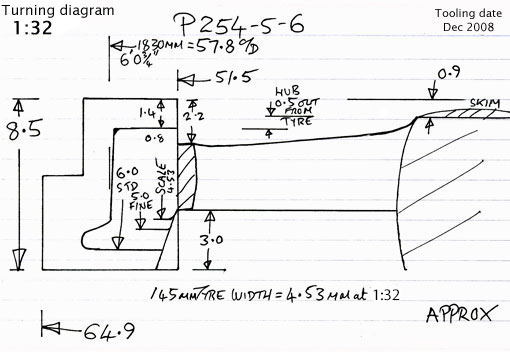 Turning diagram
1:32
P254-5-6
Tooling date
Dec 2008
1830MM = 57.8 O/D
6'0¾"
51.5
0.9
HUB
0.5 OUT
FROM
TYRE
SKIM
8.5
1.4
2.2
0.8
6.0
STD
5.0
FINE
SCALE
4.53
3.0
145MM TYRE WIDTH = 4.53 MM at 1:32
APPROX
64.9